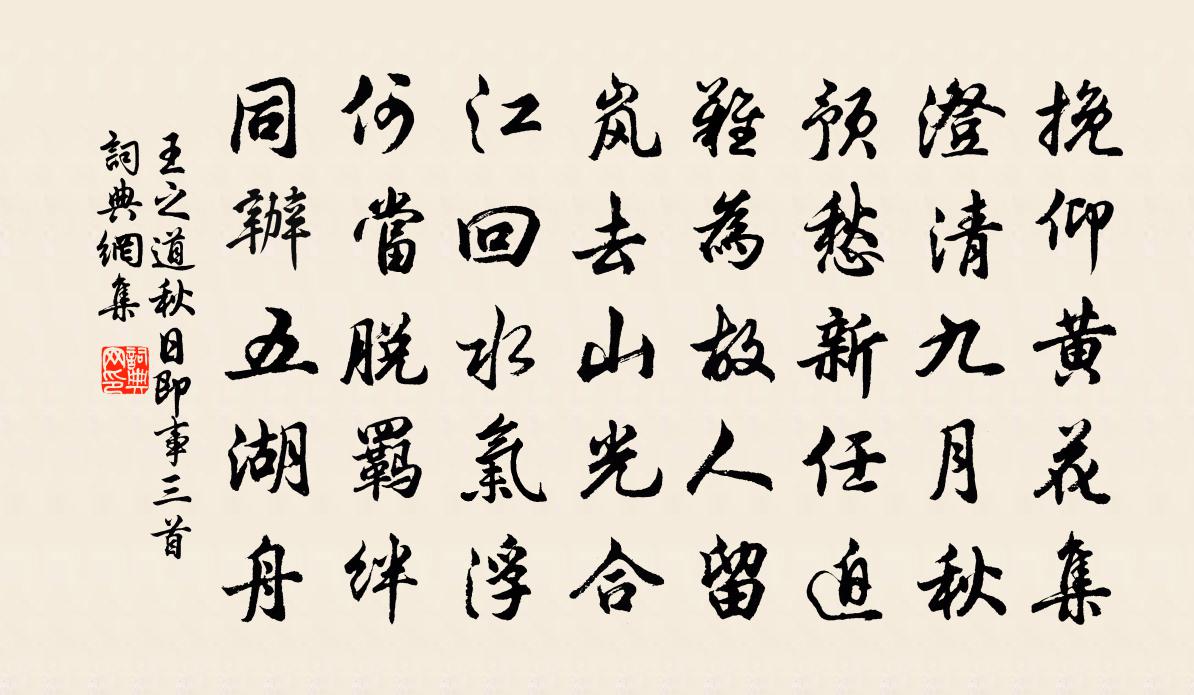 挽仰黄花集
澄清九月秋
预愁新任迫
難為故人留
岚去山光合
江回水氣浮
何當脱羁絆
同辦五湖舟
王之道秋日即事三首
詞典網集
詞典网印